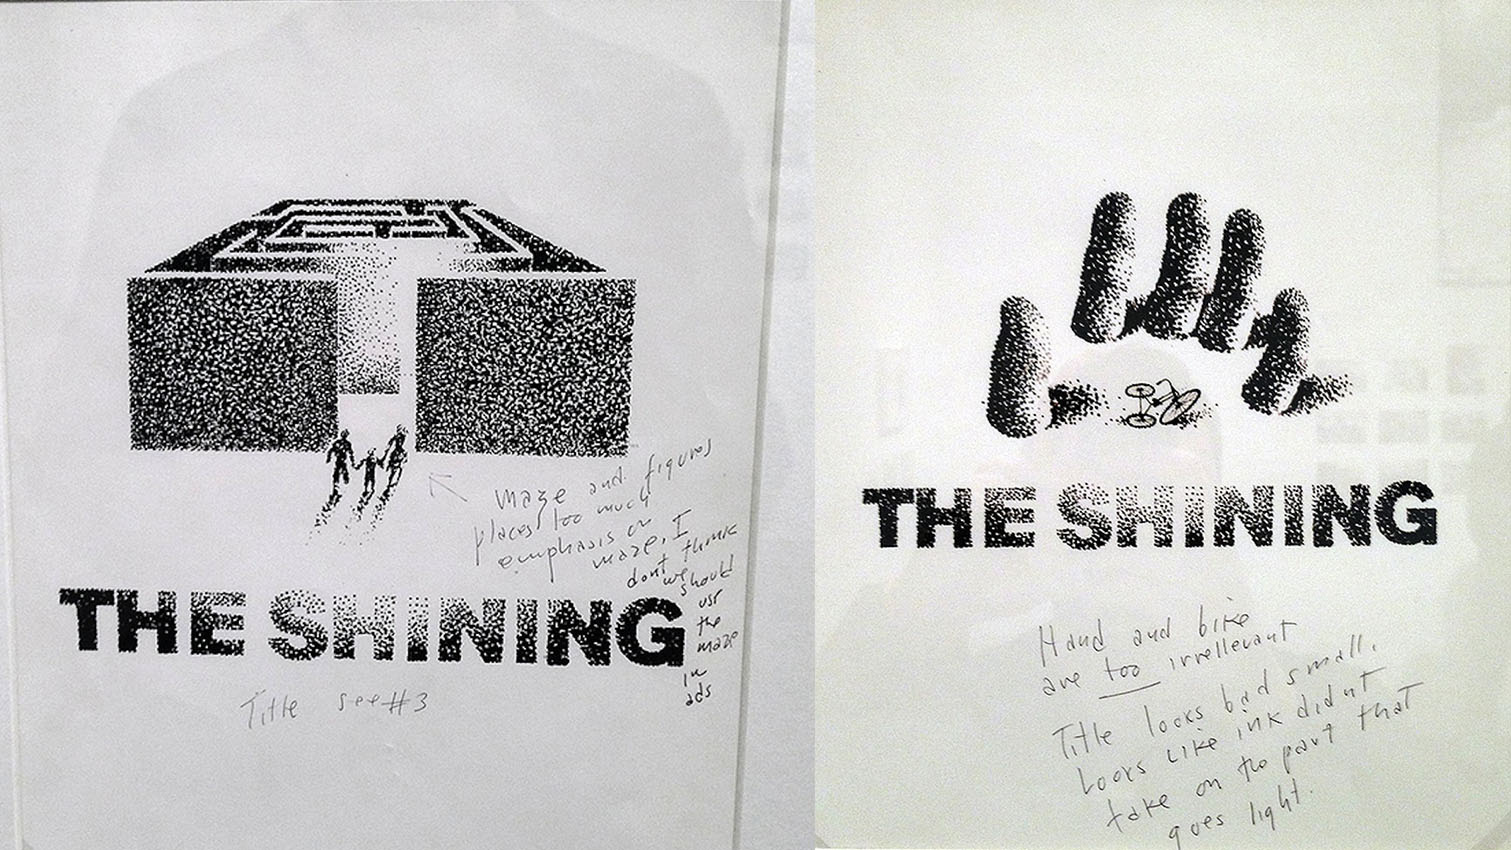 maze and figures
places too much
emphasis on
maze. I
dont think
we should
use
the
maze
in
ads
THE SHINING
Title see #3
THE SHINING
Hand and bike
are too irrellevant
Title looks bad small.
Looks like ink didnt
take on the part that
goes light.